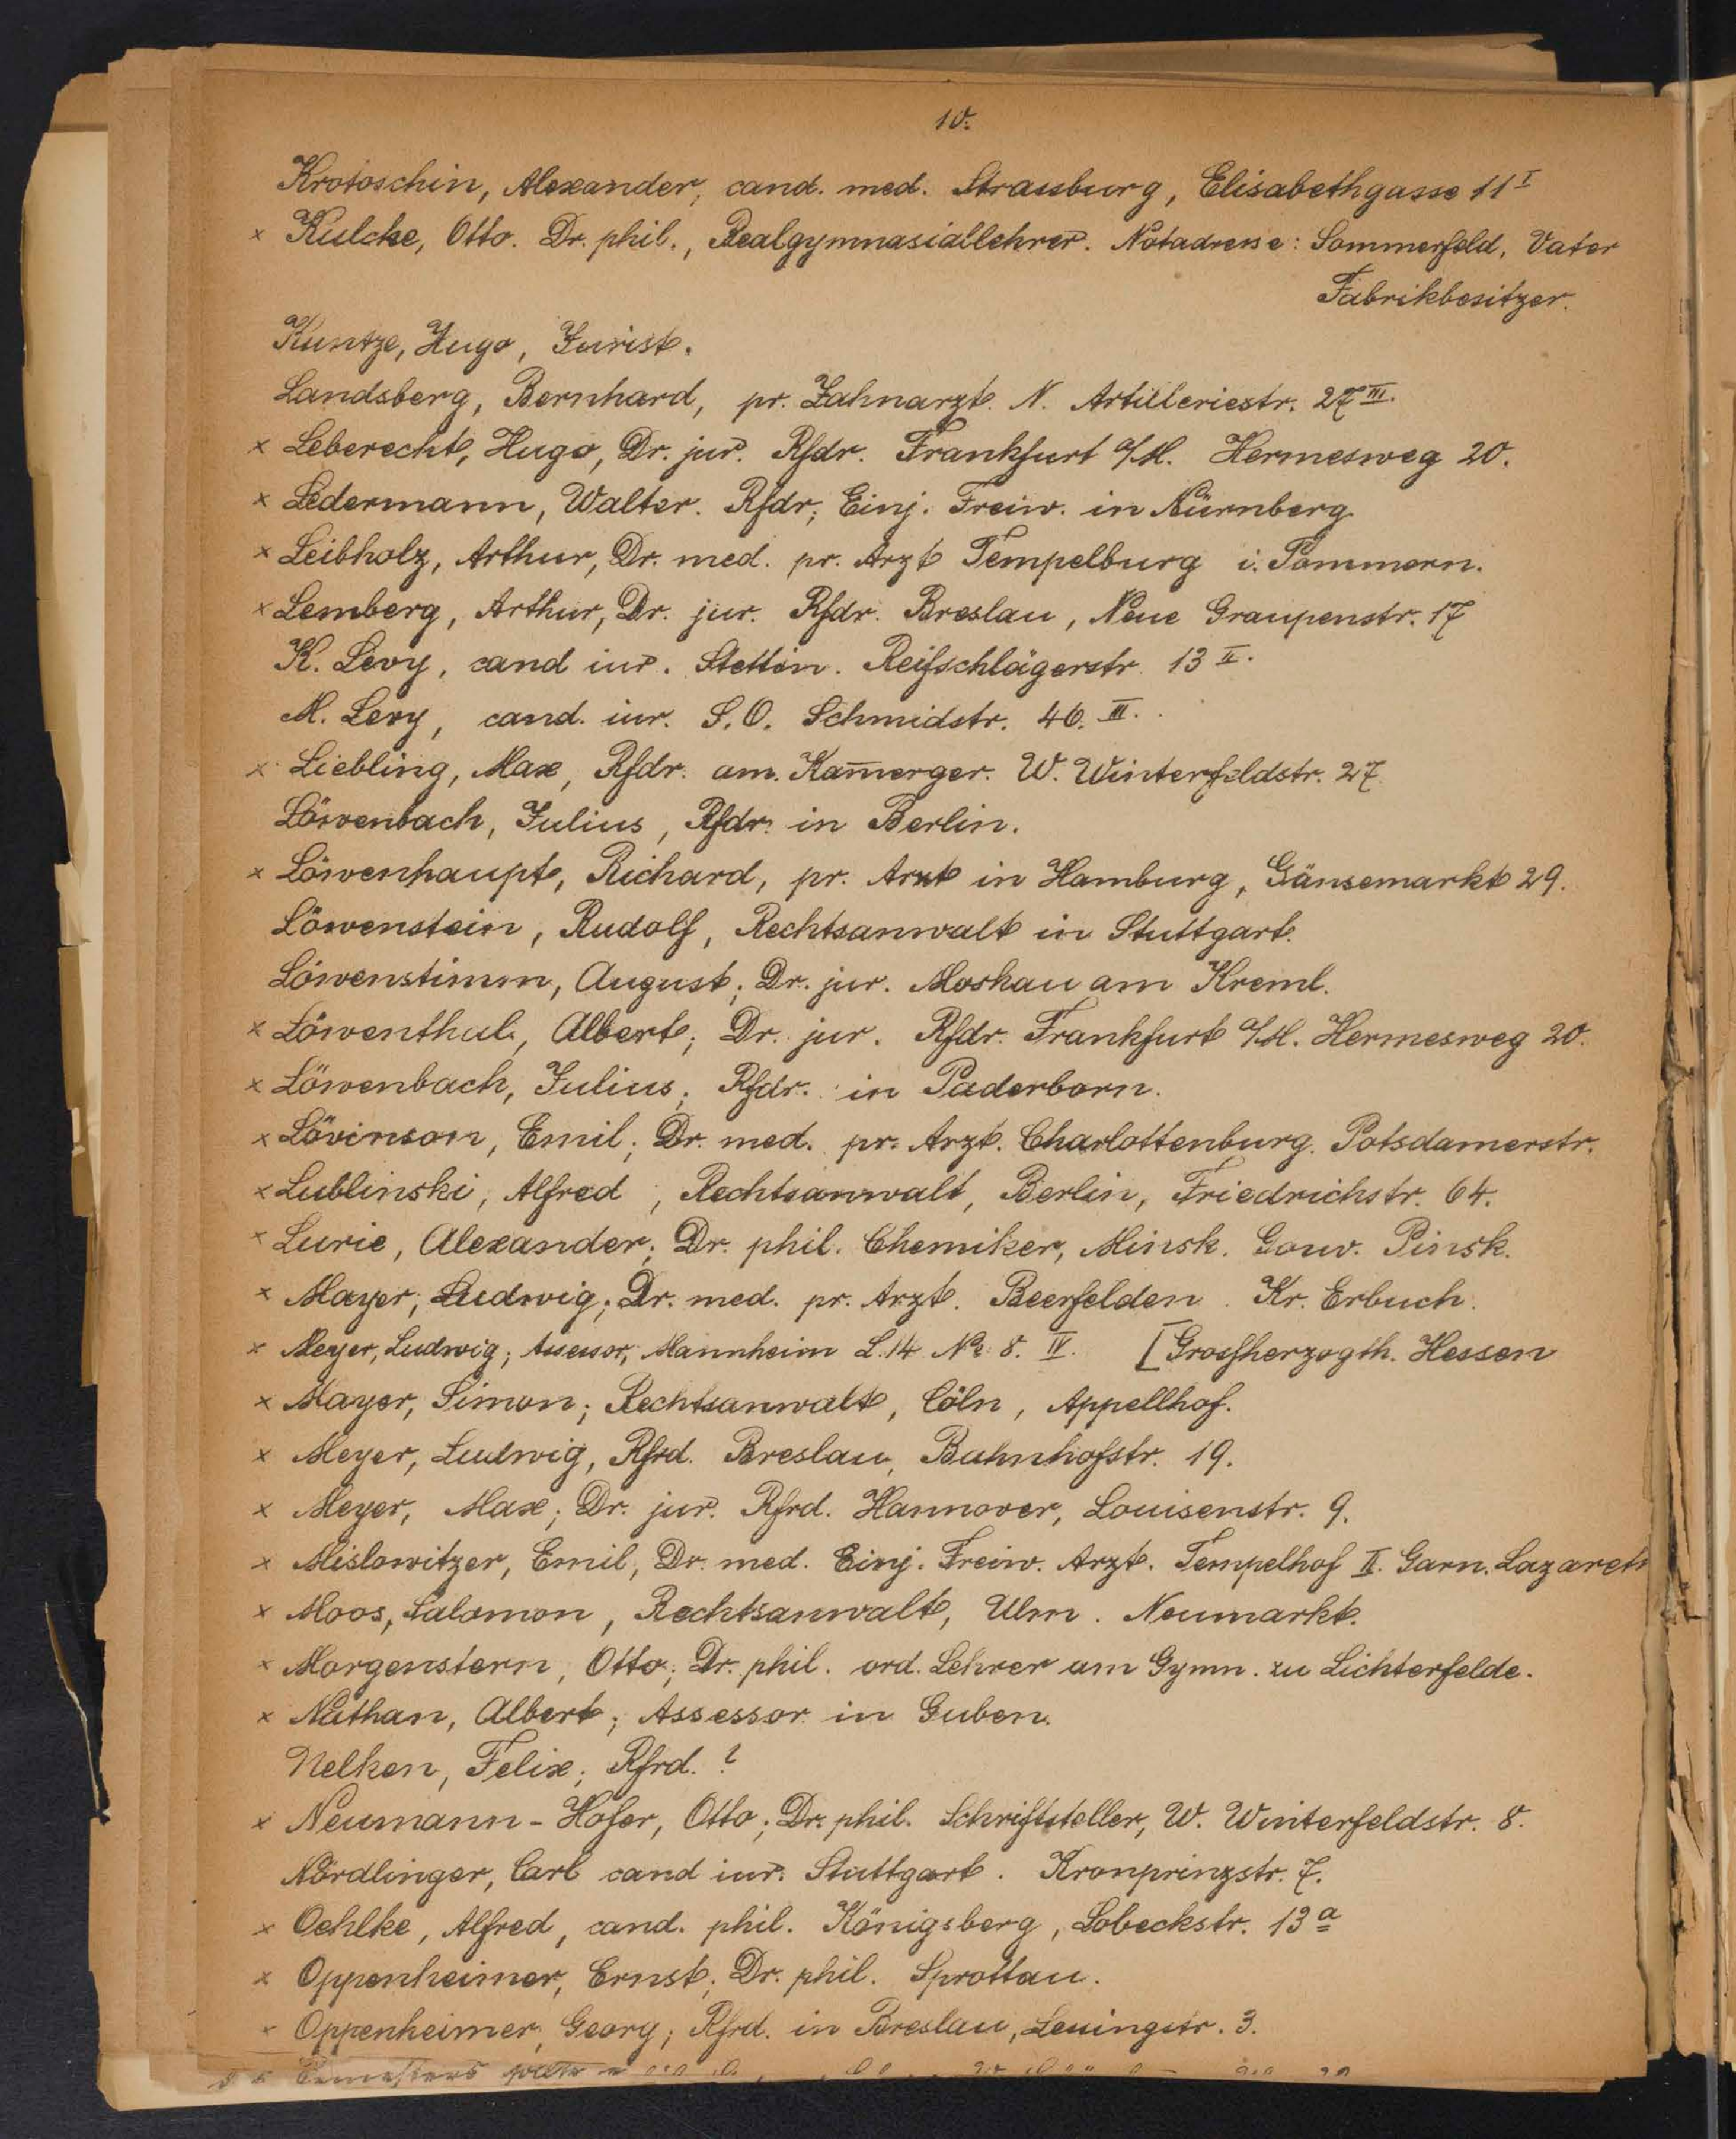 10.
Krotoschin, Alexander, cand. med. Strassburg, Elisabethgasse 11 I
× Kulcke, Otto. Dr. phil., Realgymnasiallehrer. Notadresse: Sommerfeld, Vater
Fabrikbesitzer.
Kuntze, Hugo, Jurist.
Landsberg, Bernhard, pr. Zahnarzt. N. Artilleriestr. 27 III.
× Leberecht, Hugo, Dr. jur. Rfdr. Frankfurt a/M. Hermesweg 20.
× Ledermann, Walter. Rfdr; Einj. Freiw. in Nürnberg
× Leibholz, Arthur, Dr. med. pr. Arzt Tempelburg i. Pommern.
× Lemberg, Arthur, Dr. jur. Rfdr. Breslau, Neue Graupenstr. 17
K. Levy, cand iur. Stettin. Reifschlägerstr. 13 II.
M. Levy, cand. iur. S.O. Schmidstr. 40. III.
× Liebling, Max, Rfdr. am. Kam̄erger. W. Winterfeldstr. 27.
Löwenbach, Julius, Rfdr. in Berlin.
× Löwenhaupt, Richard, pr. Arzt in Hamburg, Gänsemarkt 29.
Löwenstein, Rudolf, Rechtsanwalt in Stuttgart.
Löwenstimm, August; Dr. jur. Moskau am Kreml.
× Löwenthal, Albert; Dr. jur. Rfdr. Frankfurt a/M. Hermesweg 20.
× Löwenbach, Julius; Rfdr. in Paderborn.
× Lövinson, Emil; Dr. med. pr. Arzt. Charlottenburg. Potsdamerstr.
× Lublinski, Alfred, Rechtsanwalt, Berlin, Friedrichstr. 64.
× Lurie, Alexander; Dr. phil. Chemiker, Minsk. Gouv. Pinsk.
× Mayer, Ludwig; Dr. med. pr. Arzt. Beerfelden. Kr. Erbuch.
× Meyer, Ludwig; Assessor, Mannheim L.14 No 8. IV. [Grosherzogth. Hessen
× Mayer, Simon; Rechtsanwalt, Cöln, Appellhof.
× Meyer, Ludwig, Rfrd. Breslau, Bahnhofstr. 19.
× Meyer, Max; Dr. jur. Rfrd. Hannover, Louisenstr. 9.
× Mislowitzer, Emil, Dr. med. Einj. Freiw. Arzt. Tempelhof II. Garn. Lazareth
× Moos, Salomon, Rechtsanwalt, Ulm. Neumarkt.
× Morgenstern, Otto; Dr. phil. ord. Lehrer am Gymn. zu Lichterfelde.
× Nathan, Albert; Assessor in Guben.
Nelken, Felix; Rfrd. ?
× Neumann-Hofer, Otto; Dr. phil. Schriftsteller, W. Winterfeldstr. 8.
Nördlinger, Carl cand iur. Stuttgart. Kronprinzstr. 7.
× Oehlke, Alfred, cand. phil. Königsberg, Lobeckstr. 13 a
× Oppenheimer, Ernst; Dr. phil. Sprottau.
× Oppenheimer, Georg; Rfrd. in Breslau, Lessingstr. 3.